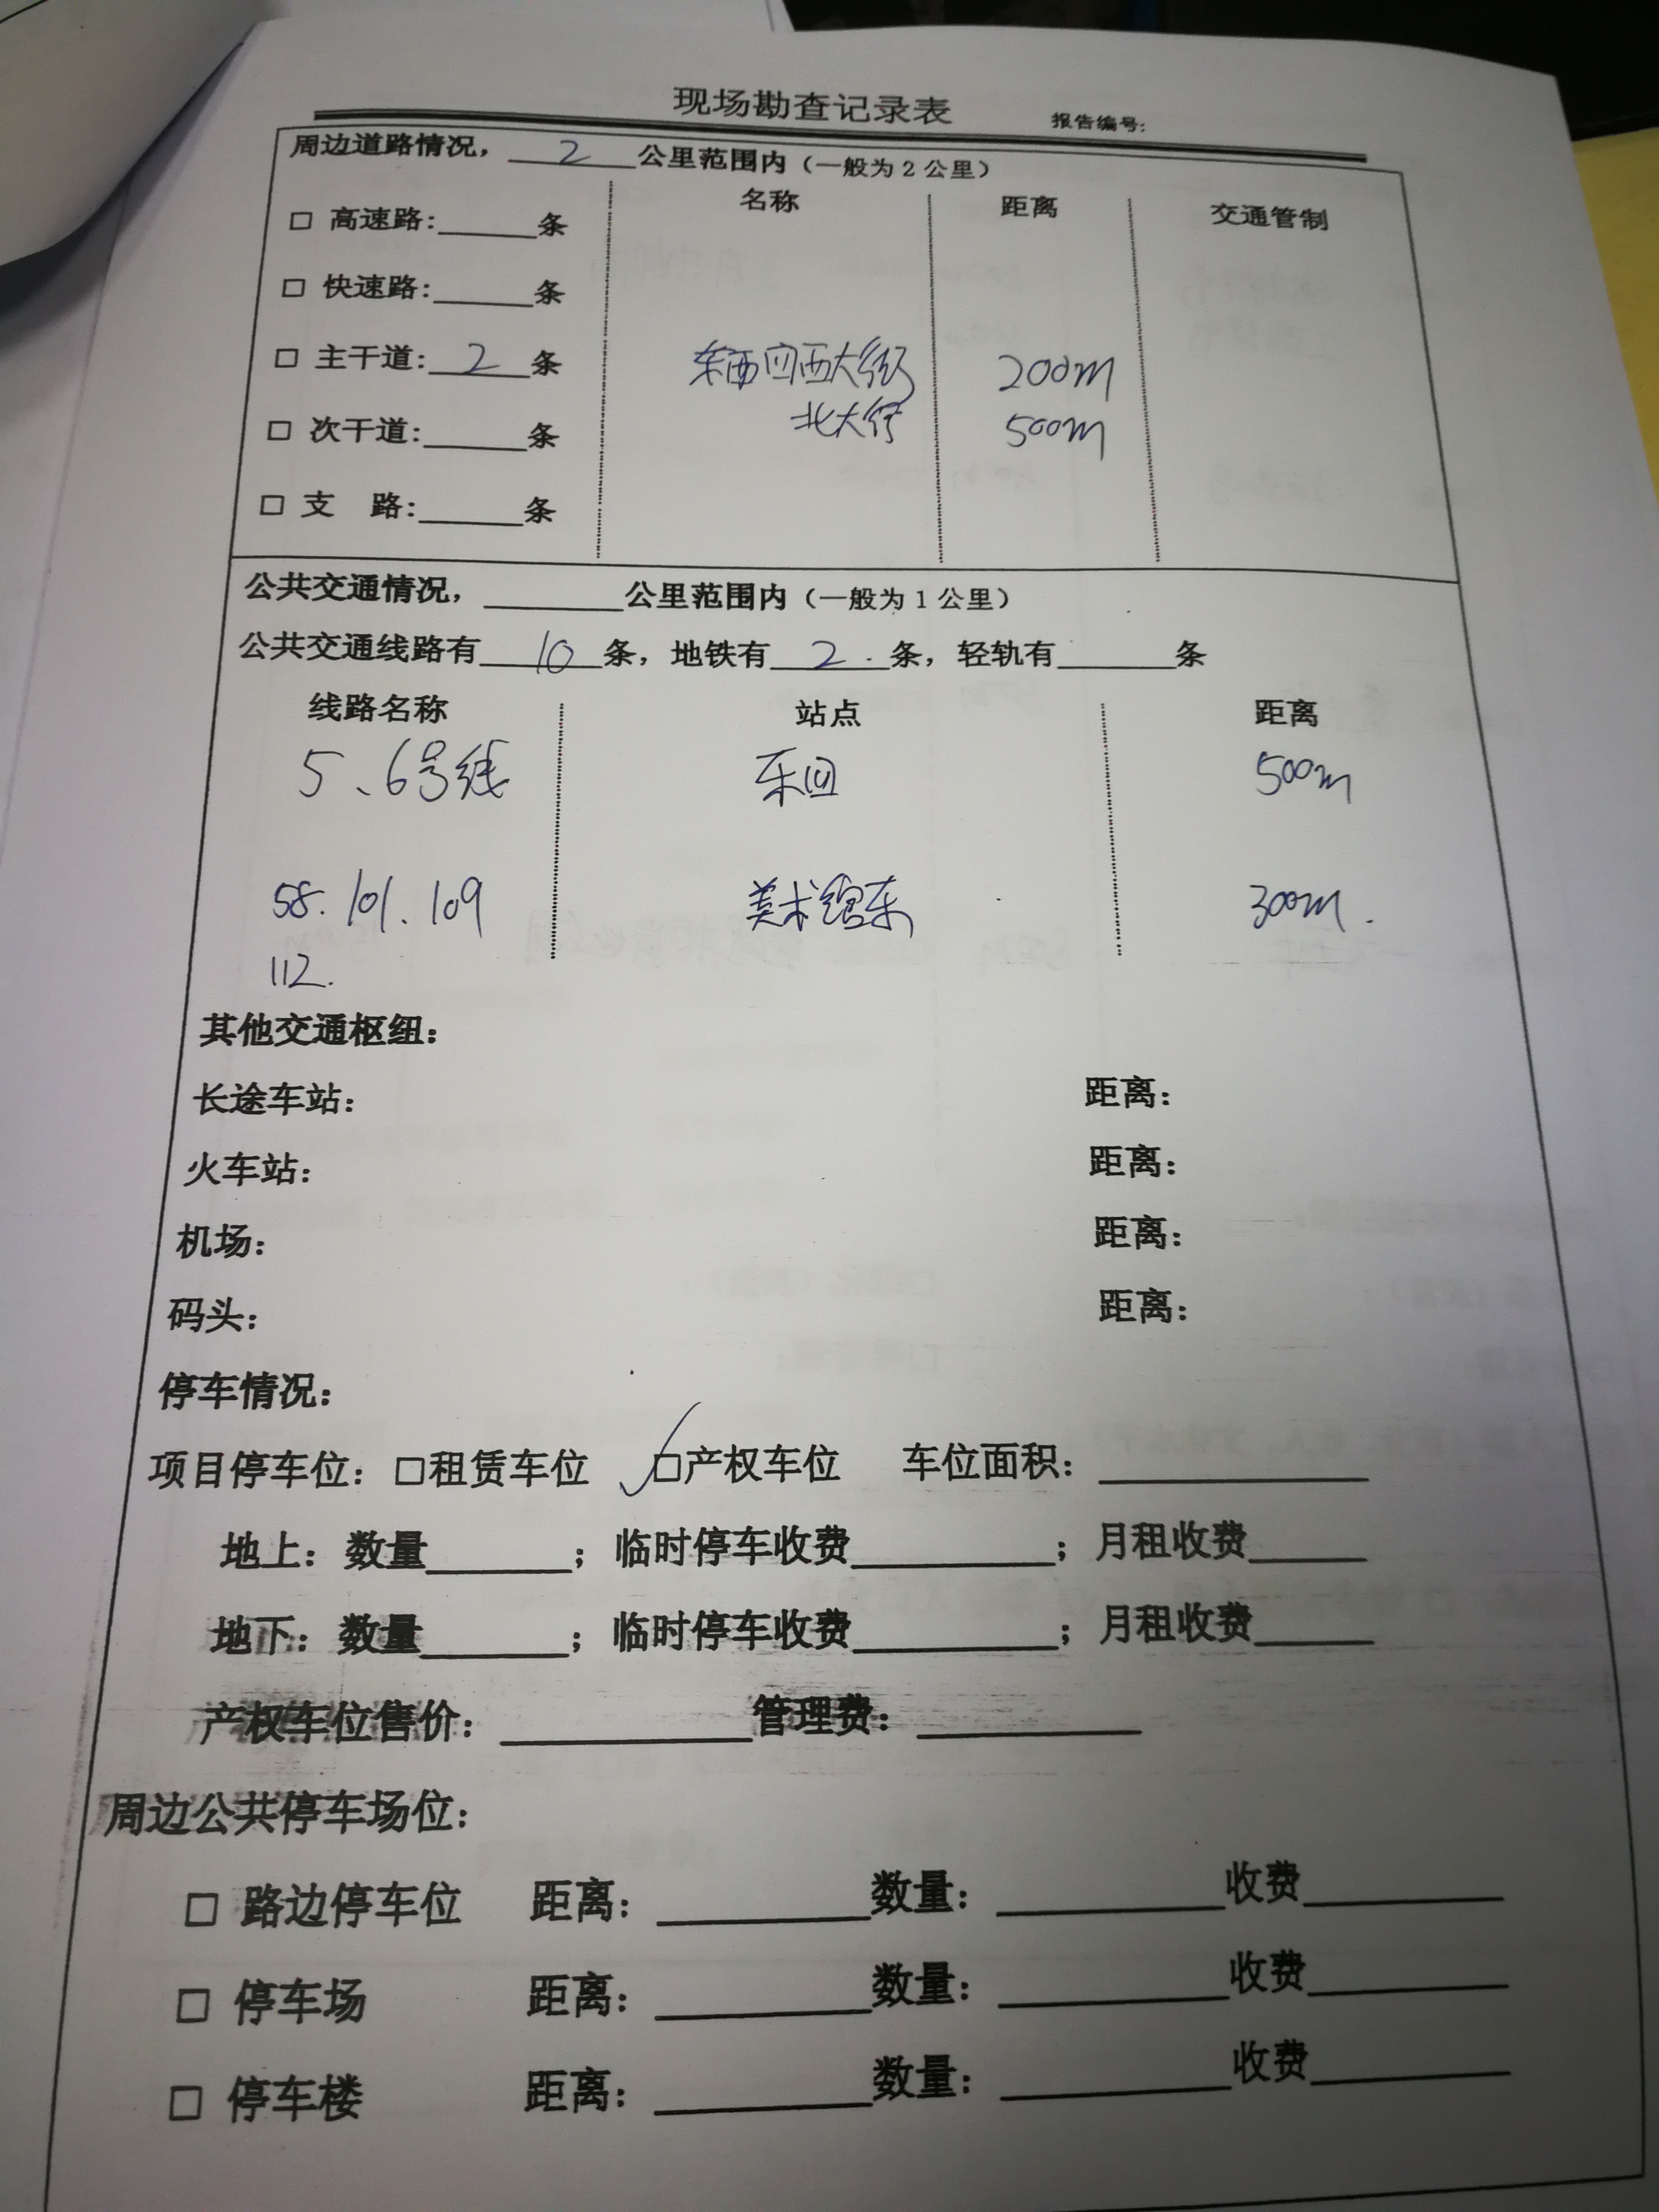 现场勘查记录表 报告编号:
周边道路情况，2公里范围内（一般为2公里）
名称 距离 交通管制
□ 高速路:______条
□ 快速路:______条
□ 主干道:2条 东西四西大街 200m
北大街 500m
□ 次干道:______条
□ 支 路:______条
公共交通情况，________公里范围内（一般为1公里）
公共交通线路有10条，地铁有2.条，轻轨有_______条
线路名称 站点 距离
5、6号线 东四 500m
58.101.109 美术馆东 300m.
112.
其他交通枢纽：
长途车站： 距离：
火车站： 距离：
机场： 距离：
码头： 距离：
停车情况：
项目停车位：□租赁车位 ✓□产权车位 车位面积：____________
地上：数量_______；临时停车收费__________；月租收费______
地下：数量_______；临时停车收费__________；月租收费______
产权车位售价：____________管理费：__________
周边公共停车场位：
□ 路边停车位 距离：__________数量：__________收费________
□ 停车场 距离：__________数量：__________收费________
□ 停车楼 距离：__________数量：__________收费________